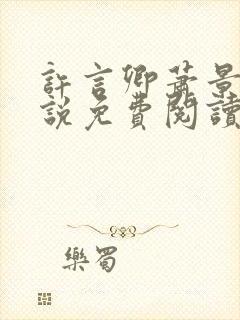 許言卿蕭景
說免費閱讀
樂蜀